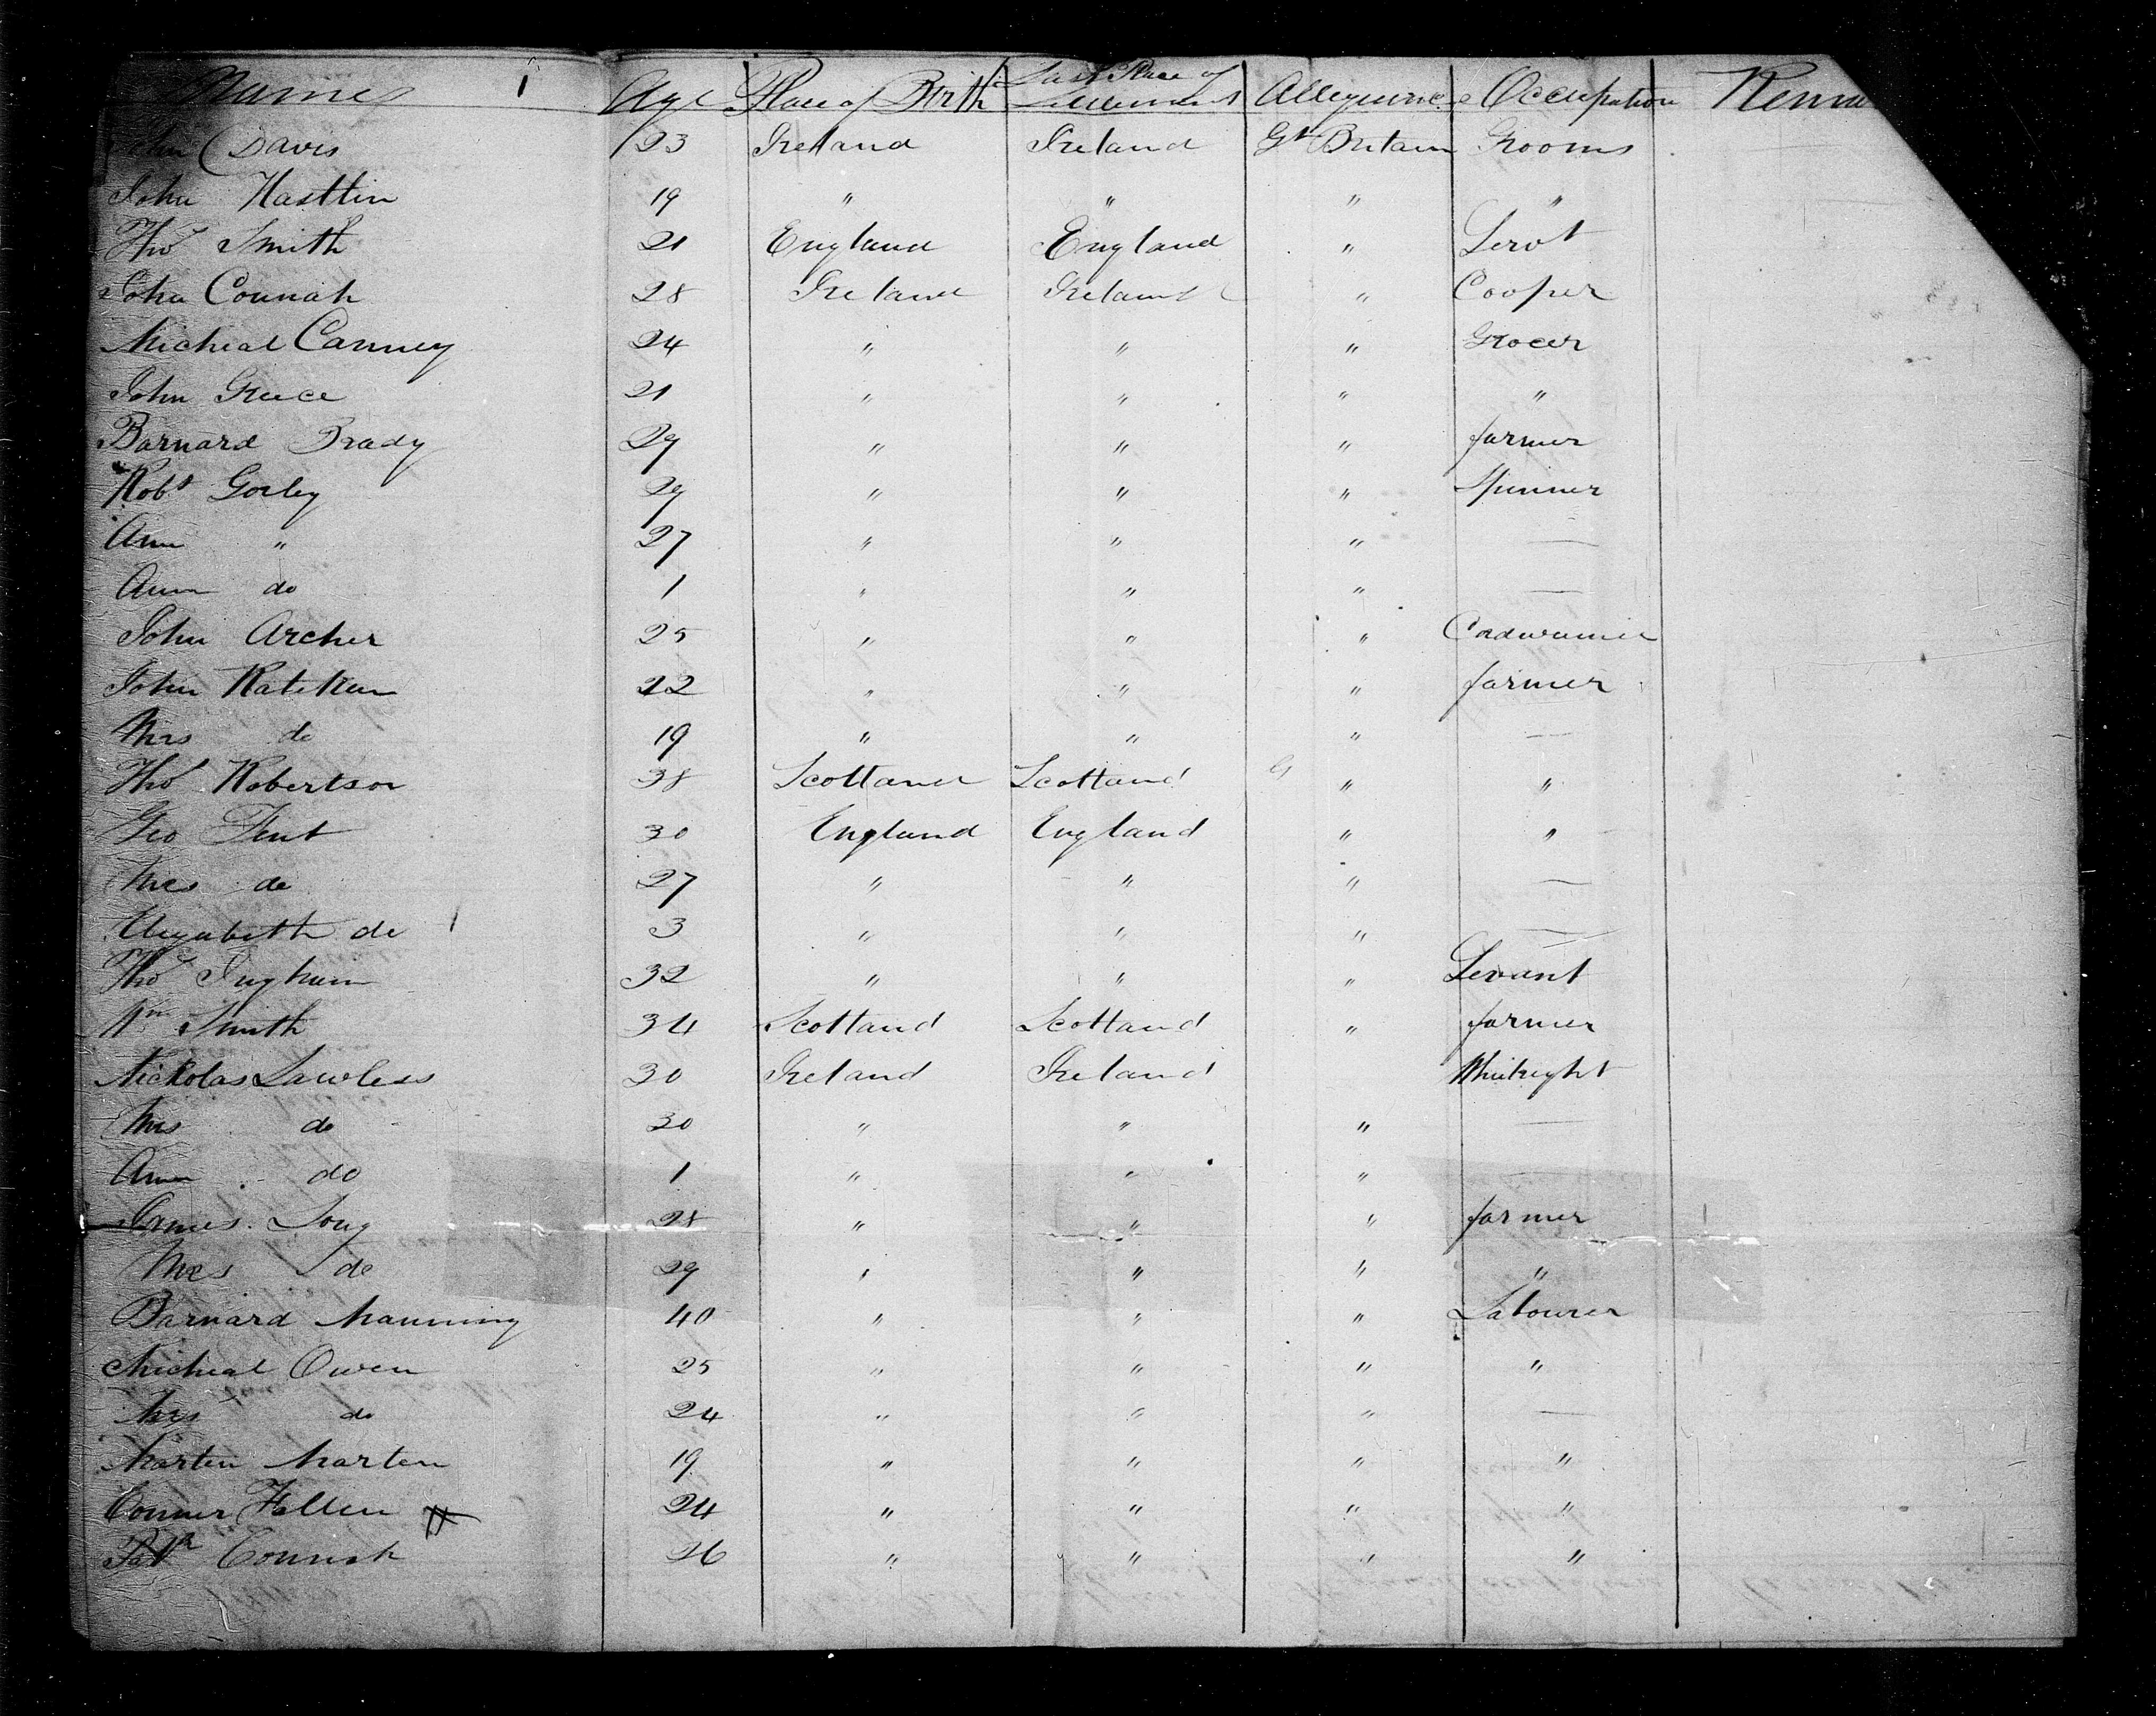 Names Age Place of Birth Last Place of Settlement Allegiance Occupation
John Davis 23 Ireland Ireland Gt Britain Grooms
John Hastlin 19 " " " "
Thos Smith 21 England England " Servt
John Connah 28 Ireland Ireland " Cooper
Micheal Canney 24 " " " Grocer
John Greece 21 " " " "
Barnard Brady 29 " " " farmer
Robt Gorley 29 " " " Spinner
Ann " 27 " " " —
Ann do 1 " " " —
John Archer 25 " " " Cordwainer
John 22 " " " farmer
Mrs do 19 " " " —
Thos Robertson 38 Scotland Scotland " "
Geo Fent 30 England England " "
Mrs do 27 " " " —
Elizabeth do 3 " " " —
Thos Ingham 32 " " " Servant
Wm Smith 34 Scotland Scotland " farmer
Nickolas Lawless 30 Ireland Ireland
Mrs do 30 " " " —
Ann do 1 " " " —
James Long 28 " " " farmer
Mrs do 29 " " " "
Barnard Manning 40 " " " Labourer
Micheal Owen 25 " " " "
Mrs do 24 " " " —
Marten Marten 19 " " " "
Conner Fallen 24 " " " "
Patk Connish 26 " " " "